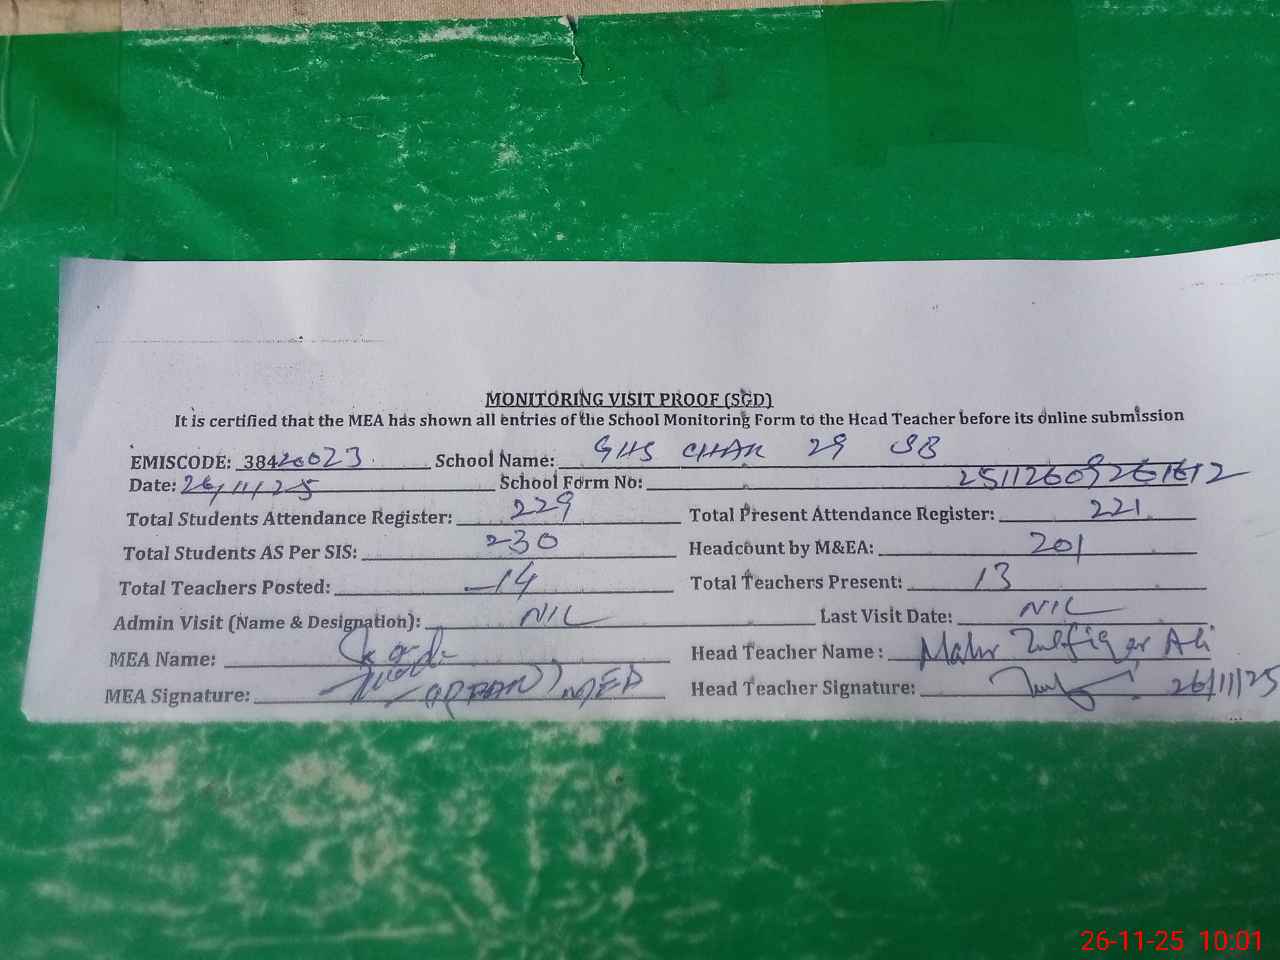 MONITORING VISIT PROOF (SGD)
It is certified that the MEA has shown all entries of the School Monitoring Form to the Head Teacher before its online submission
EMISCODE: 38420023 School Name: GHS CHAK 29 SB
Date: 26/11/25 School Form No:
Total Students Attendance Register: 229 Total Present Attendance Register: 221
Total Students AS Per SIS: 230 Headcount by M&EA: 201
Total Teachers Posted: 14 Total Teachers Present: 13
Admin Visit (Name & Designation): NIL Last Visit Date: NIL
MEA Name: Head Teacher Name: Mahr Zulfiqar Ali
MEA Signature: Head Teacher Signature: 26/11/25
26-11-25 10:01